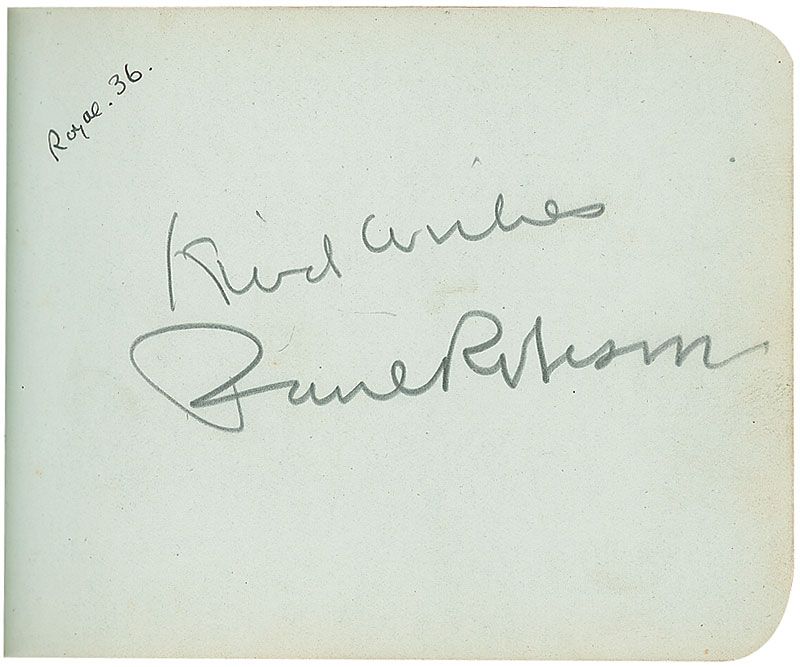 Royal. 36.
Kind wishes
Paul Robeson